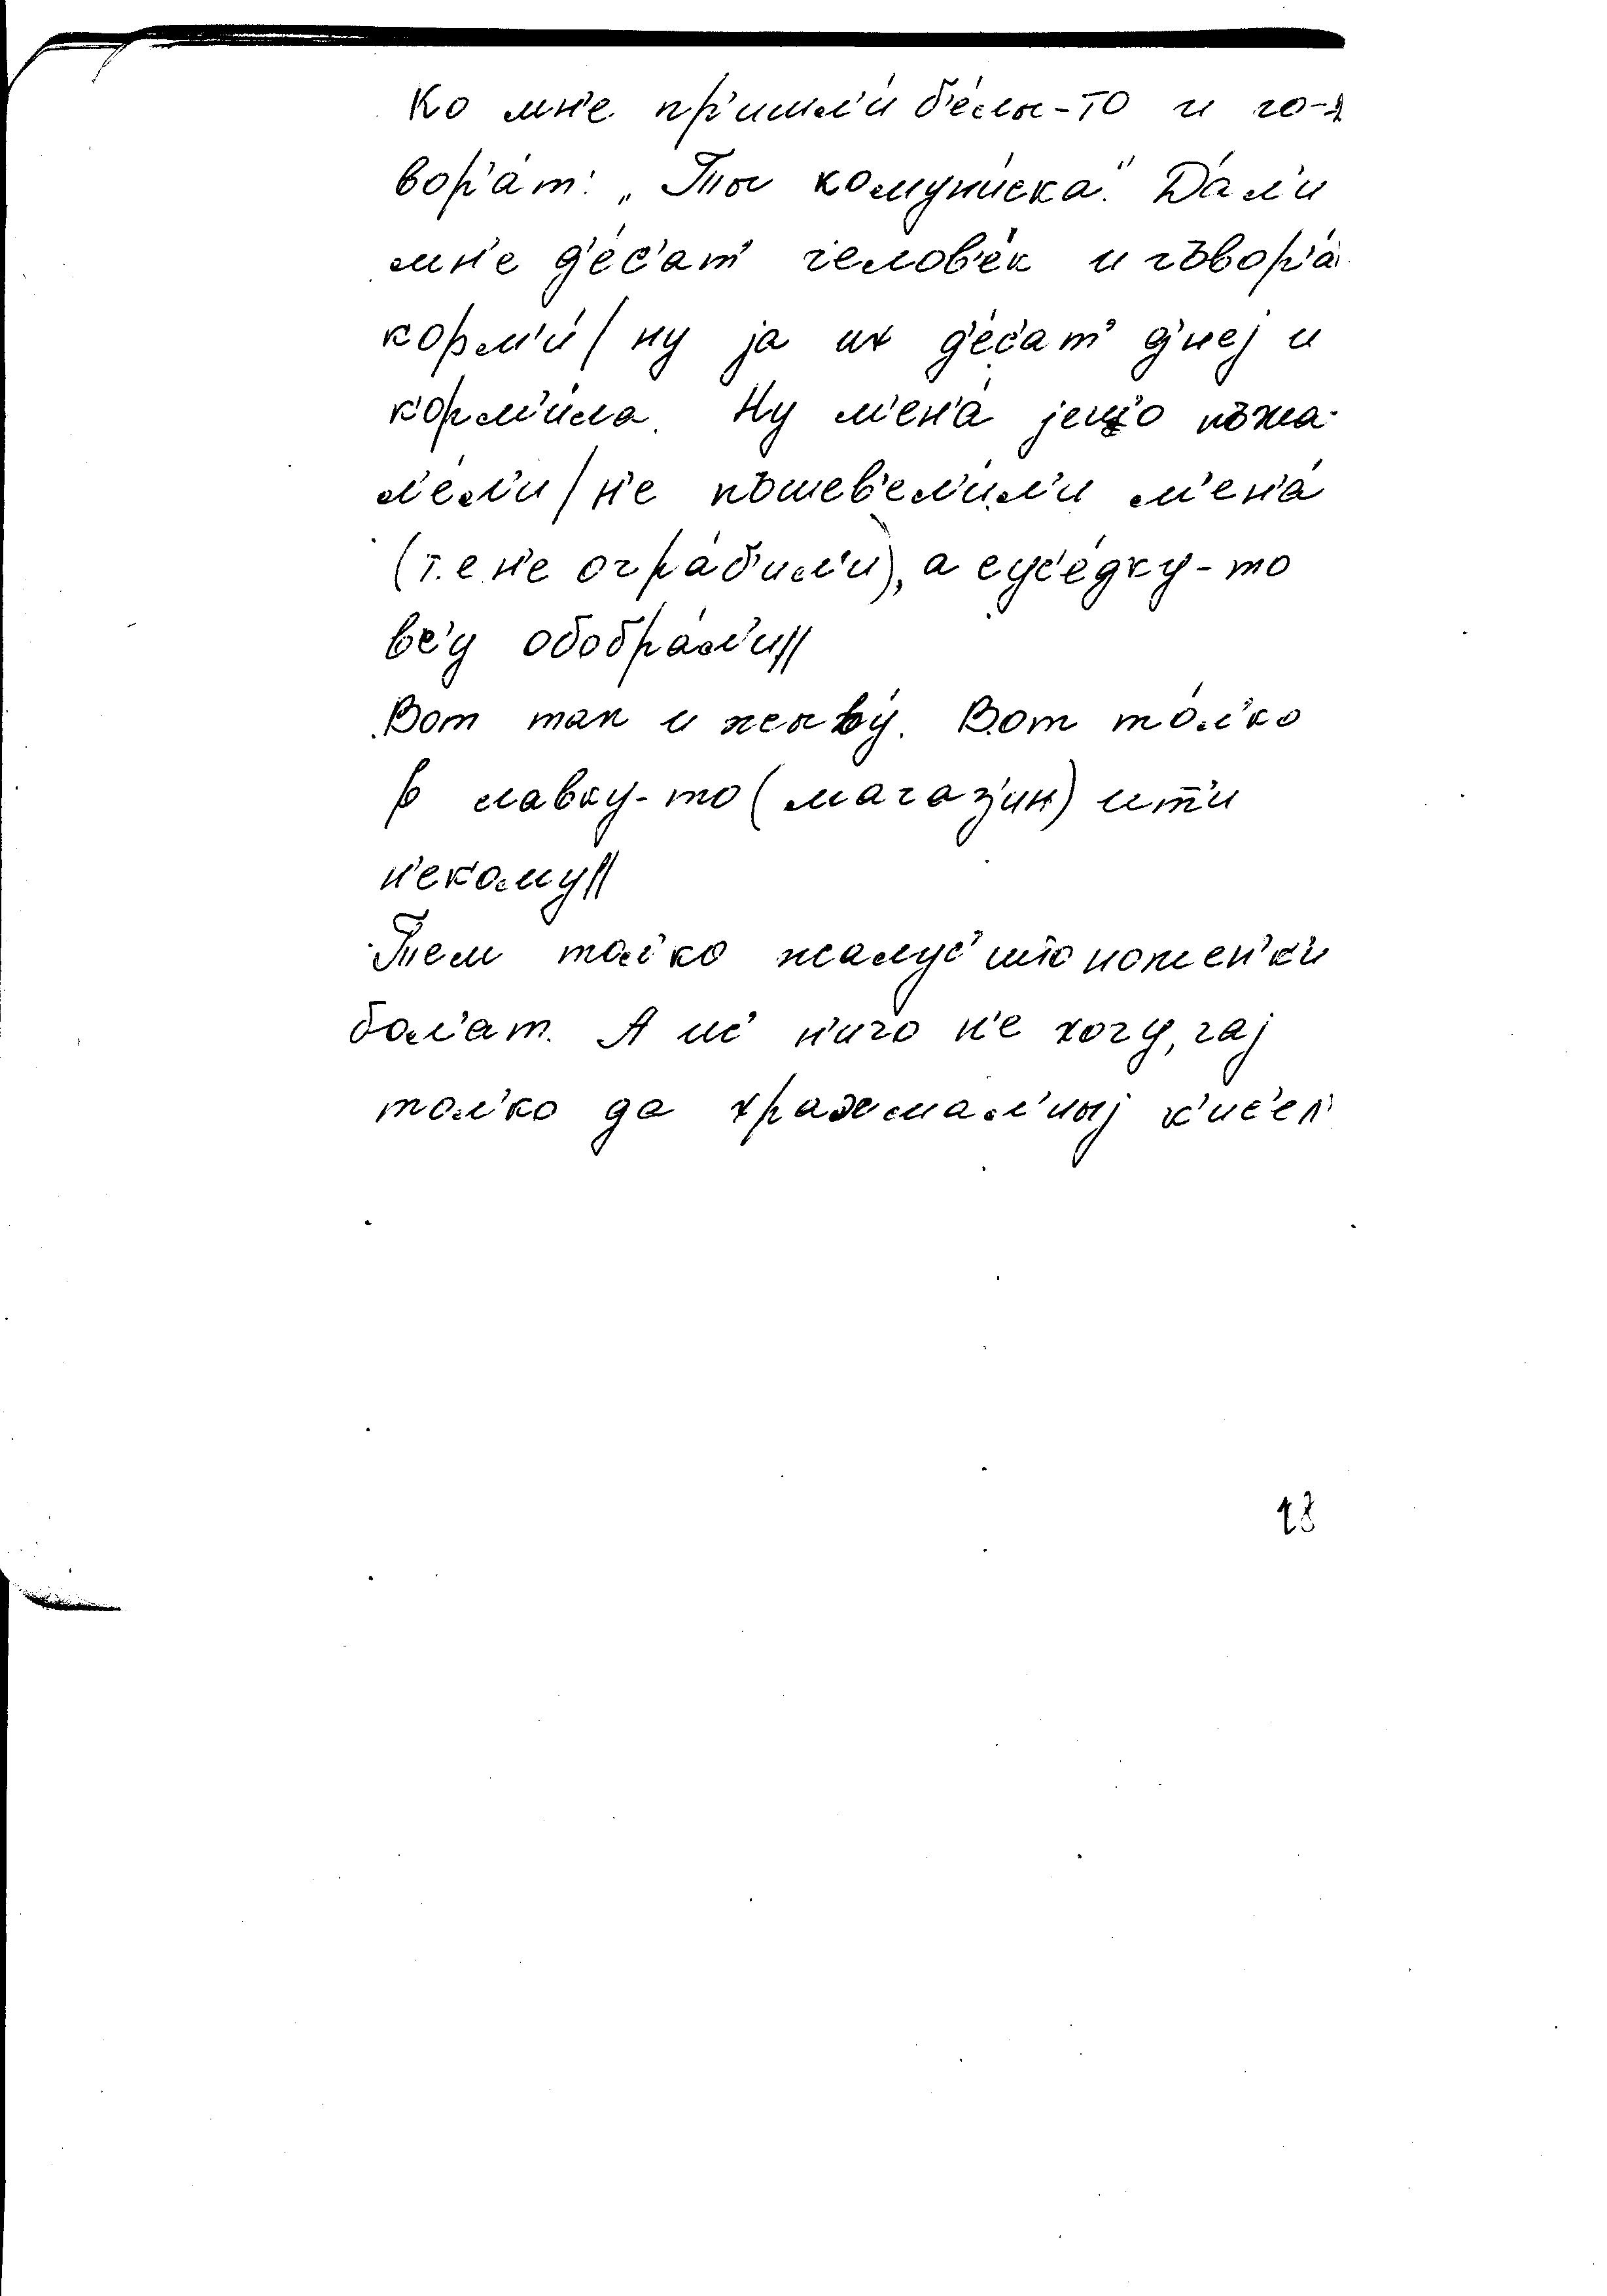 Ко мн'е пр'ишл'и́ б'е́лы-то и го-
вор'а́т: „Ты комуни́ска." Да́л'и
мн'е д'е́с'ат' челов'е́к и гъвор'а́
корм'и́/ ну ја их д'е́с'ат' д'н'еј и
корм'и́ла. Ну м'ен'а́ јещо пъжа-
л'е́л'и/ н'е пъшев'ел'и́л'и м'ен'а́
(т.е н'е огра́бил'и), а сус'е́дку-то
вс'у обобра́л'и//
Вот так и жыву́. Вот то́л'ко
в лавку-то (магаз'ин) ит'и
н'екому//
Тем тол'ко жалус' што ноженк'и
бол'ат. А ис' н'иго н'е хочу, чај
тол'ко да крахмал'ныј к'ис'ел'
18